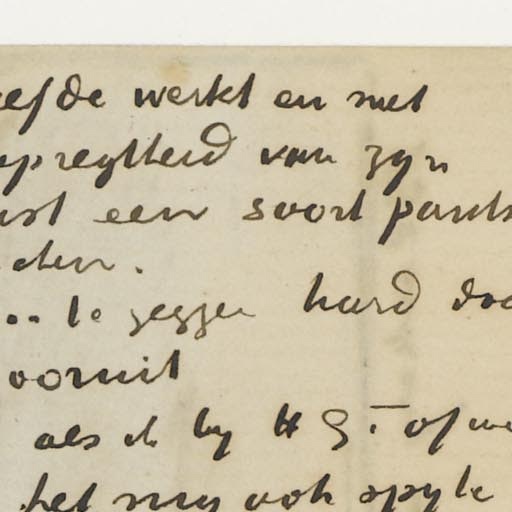 efde werkt en met
opregtheid van zyn
ust een soort pants
den.
.. te zeggen hard doo
vooruit
als ik by H G T of we
het my ook spyte